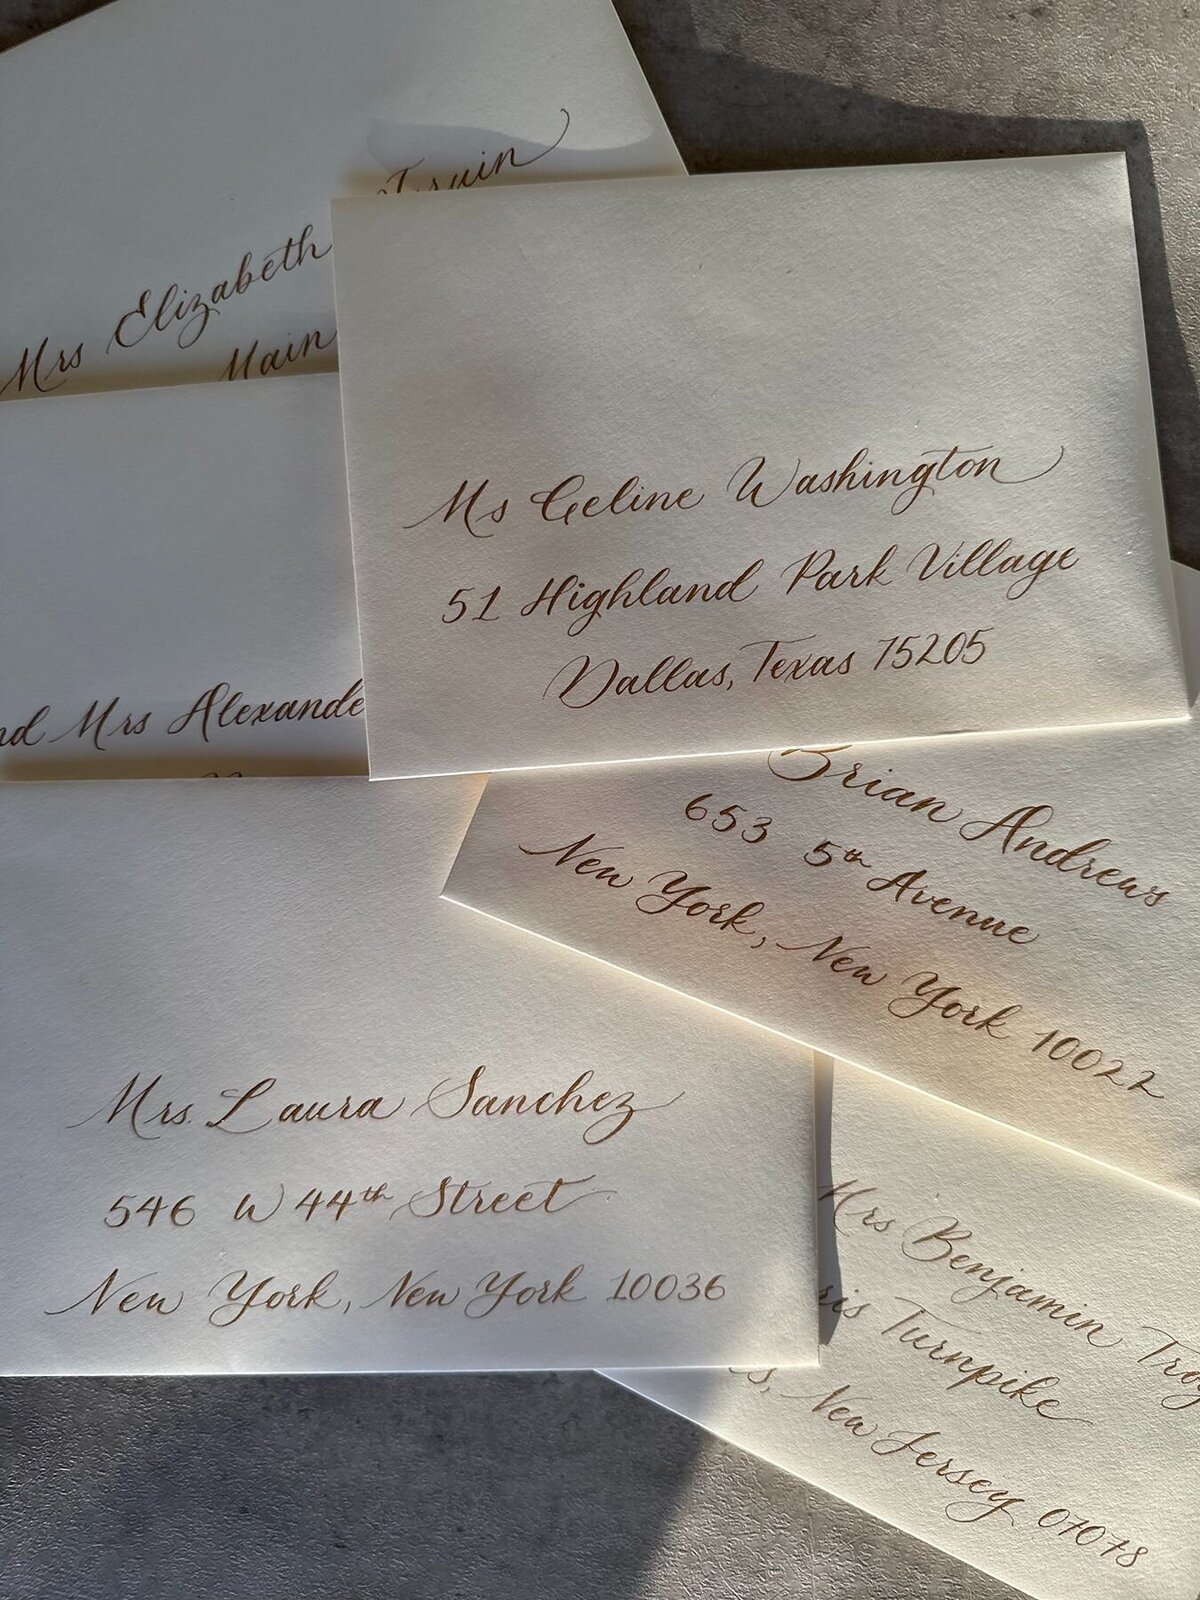 Mrs Elizabeth
Main
nd Mrs Alexande
Ms Celine Washington
51 Highland Park Village
Dallas, Texas 75205
Brian Andrews
653 5th Avenue
New York, New York 10022
Mrs. Laura Sanchez
546 W 44th Street
New York, New York 10036
Mrs Benjamin
Turnpike
s, New Jersey 07078